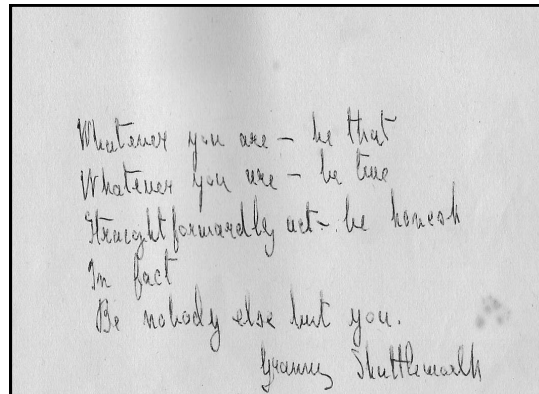 Whatever you are – be that
Whatever you are – be true
Straightforwardly act – be honest
In fact
Be nobody else but you.
Granny Shuttleworth